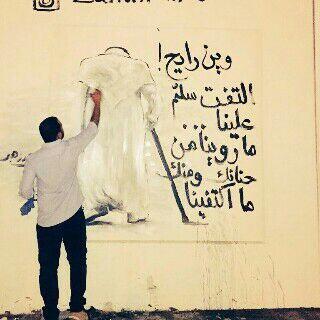 وين رايح!
التفت سلم
علينا
ماروينا من
حنانك ومنك
ما اكتفينا